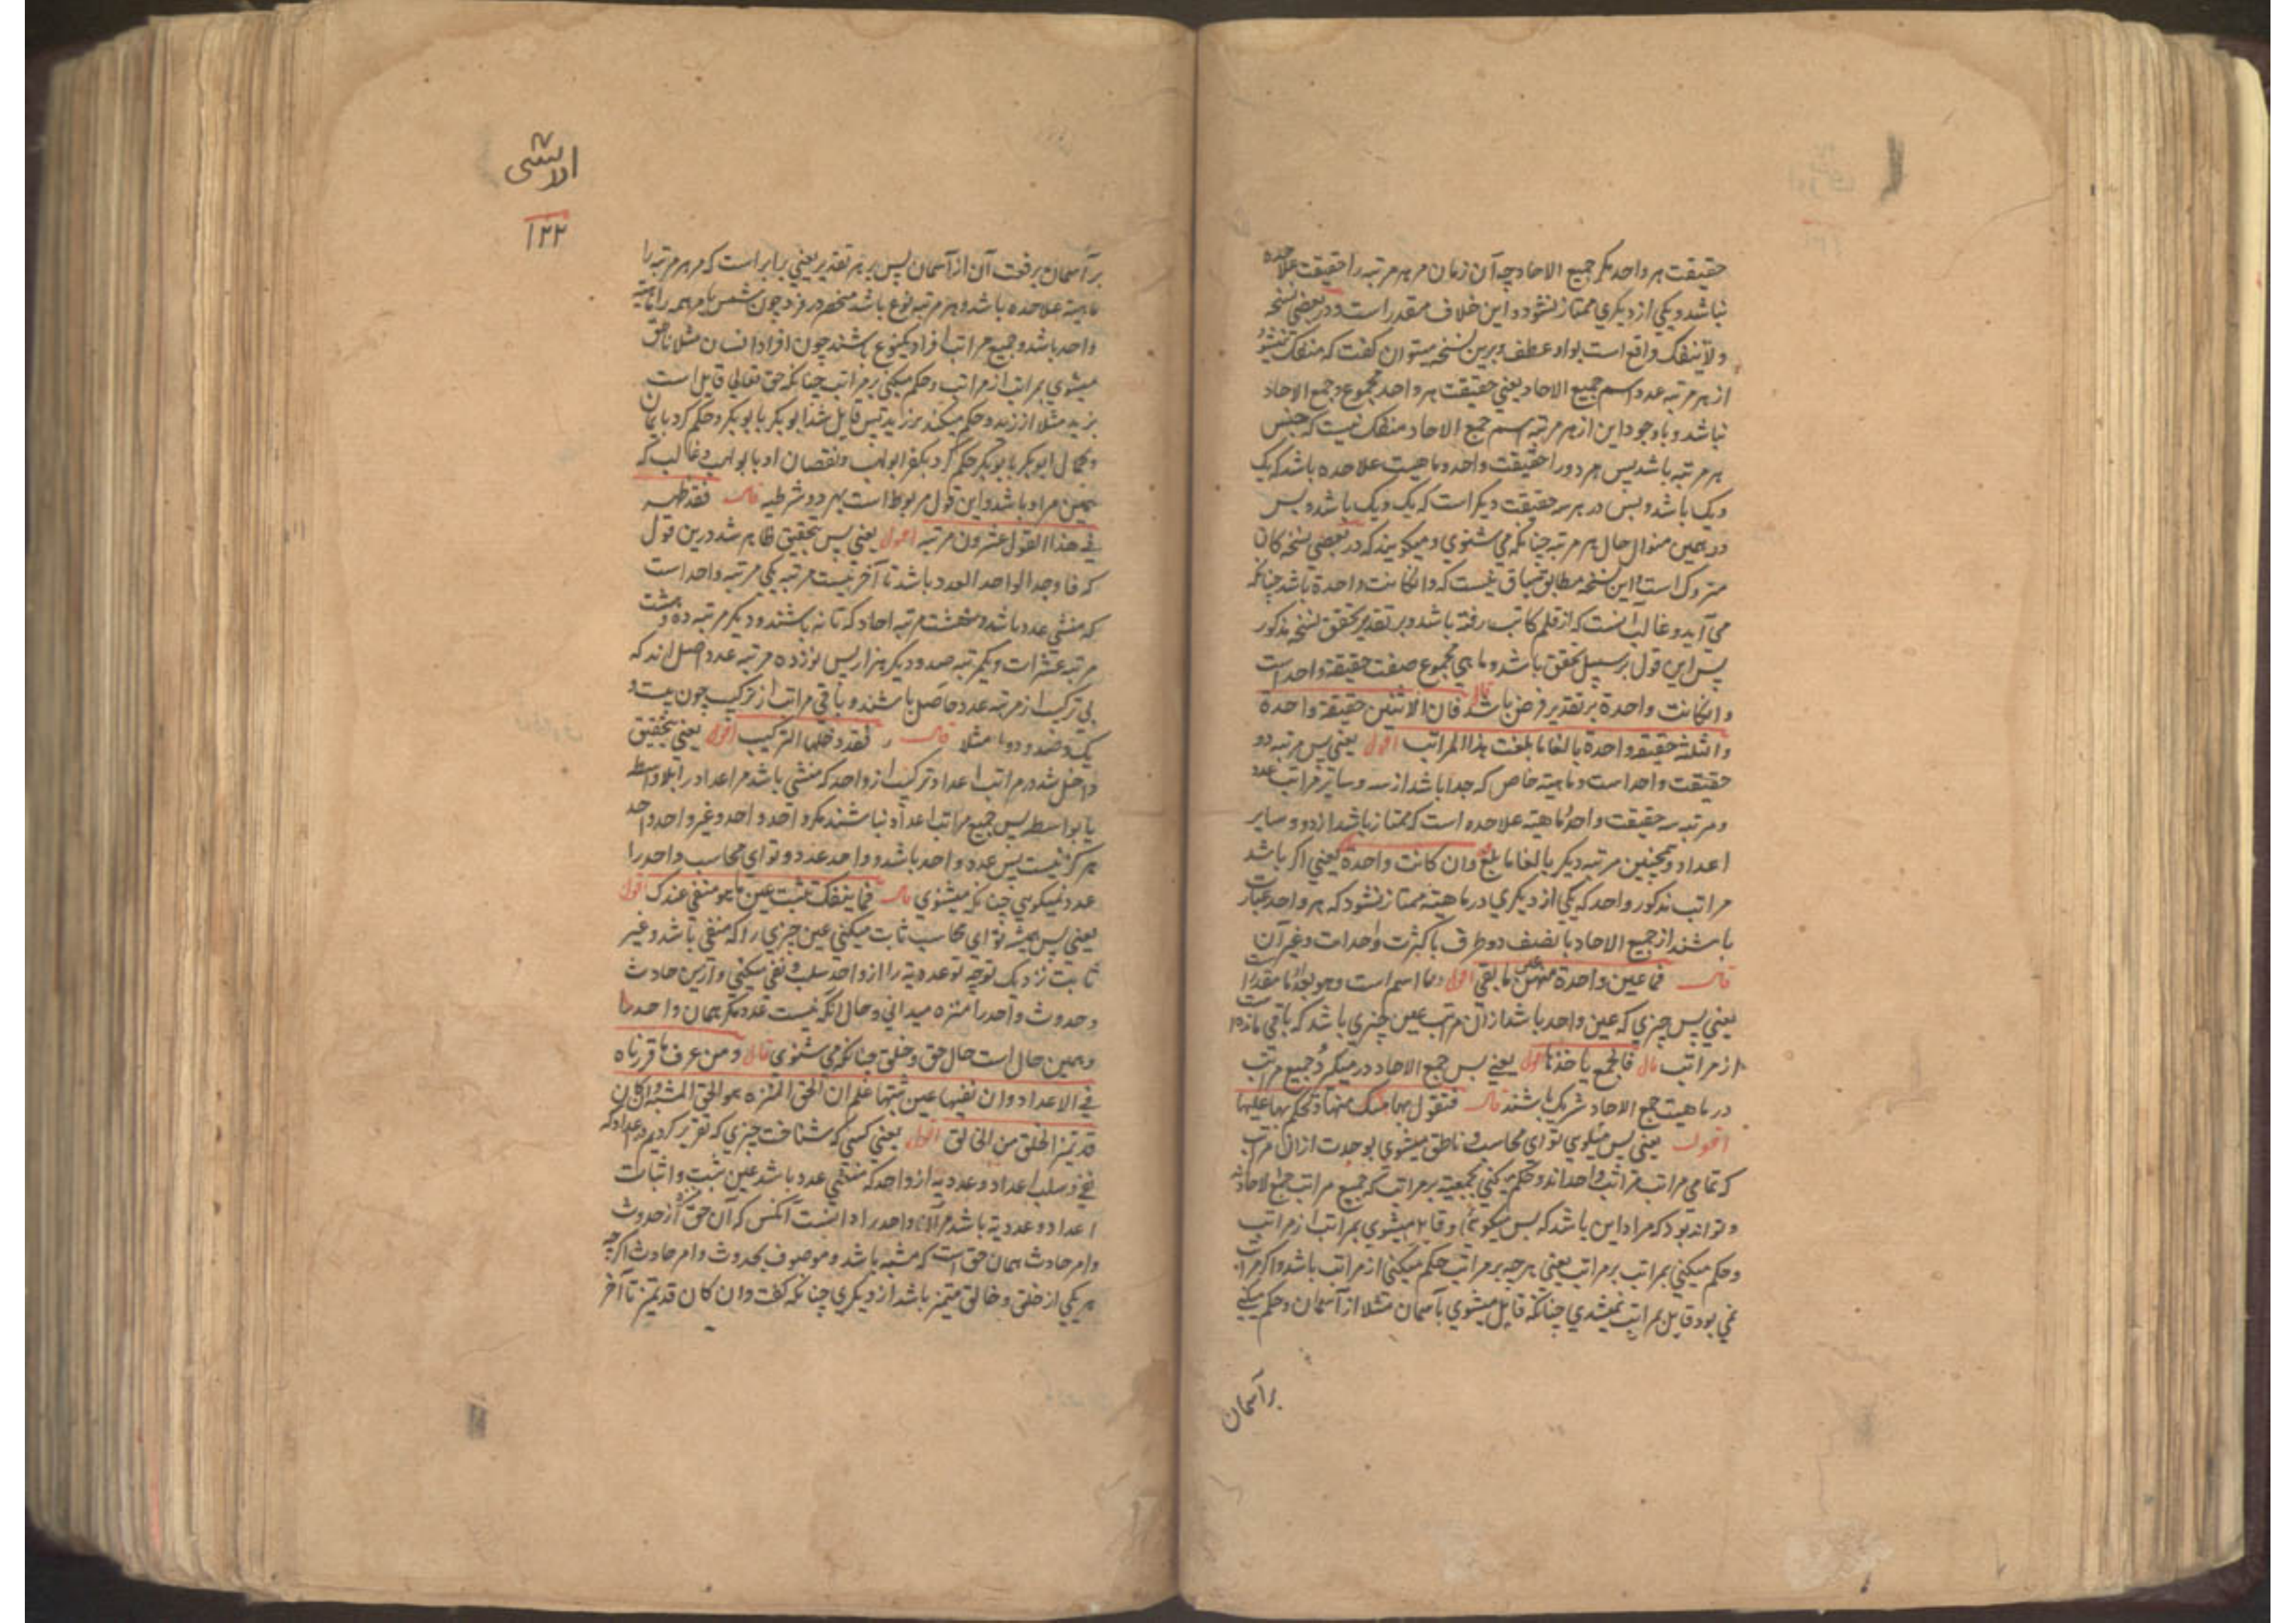 حقیقت هر واحد مکر جمیع الاحاد چه آن زمان مر هر مرتبه را حقیقت علاحده
نباشد و یکی از دیکری ممتاز نشود و این خلاف مقدر است و در بعضی نسخه
ولا ینفک واقع است بواو عطف و برین نسخه میتوان کفت که منفک نمیشود
از هر مرتبه عدد اسم جمیع الاحاد یعنی حقیقت هر واحد مجموع و جمع الاحاد
نباشد و با وجود این از هر مرتبه اسم جمع الاحاد منفک نیست که جنس
هر مرتبه باشد پس هر دو را حقیقت واحد و ماهیت علاحده باشد که یک
و یک باشد و بس و در هر سه حقیقت دیکر است که یک و یک باشد و بس
و بر همین منوال حال هر مرتبه چنانکه می شنوی و میکویند که در بعضی نسخه کان
متروک است و این نسخه مطابق سیاق نیست که وان کانت واحدة باشد چنانکه
می آید و غالب آنست که از قلم کاتب رفته باشد و بر تقدیر تحقق نسخه مذکور
پس این قول بر سبیل تحقق باشد و ما هی مجموع صفت حقیقة واحد است
وانکانت واحدة بر تقدیر فرض باشد قال فان الاثنین حقیقة واحدة
والثلثه حقیقة واحدة بالغا ما بلغت هذا المراتب اقول یعنی پس مرتبه دو
حقیقت واحد است و ماهیته خاص که جدا باشد از سه و سایر مراتب عدد
و مرتبه سه حقیقت واحد و ماهیته علاحده است که ممتاز باشد از دو و سایر
اعداد و همچنین مرتبه دیکر بالغا ما بلغ قال وان کانت واحدة یعنی اکر باشد
مراتب مذکور واحد که یکی از دیکری در ماهیته ممتاز نشود که هر واحد عبارت
باشند از جمیع الاحاد یا نصف دو طرف یا کثرت واحدات و غیر آن
قال فما عین واحدة منهن عین ما بقی اقول
یعنی پس چیزی که عین واحد باشد از آن مراتب عین چیزی باشد که باقی مانده است
از مراتب قال فالجمع یاخذها اقول یعنی پس جمع الاحاد در میکرد جمیع مراتب
در ماهیت جمع الاحاد شریک باشند قال فنقول بها منک منها و تحکم بها علیها
اقول یعنی پس میکویی تو ای محاسب و ناطق میشوی بوحدت از ان مراتب
که تمامی مراتب مراتب واحد اند و حکم میکنی بجمعیته بر مراتب که جمیع مراتب جمع الاحاد اند
و تواند بود که مراد این باشد که پس میکویی و قایل میشوی بمراتب از مراتب
و حکم میکنی بمراتب بر مراتب یعنی هر چه بر مراتب حکم میکنی از مراتب باشد و اکر مراتب
نمی بود قایل بمراتب نمیشدی چنانکه قایل میشوی بآسمان مثلا از آسمان و حکم میکنی
بر آسمان
الاشی
۱۲۲
بر آسمان برفعت آن از آسمان پس بر هر تقدیر یعنی برابر است که مر هر مرتبه را
ماهیته علاحده باشد و هر مرتبه نوع باشد منحصر در فرد چون شمس یا مر همه را ماهیته
واحد باشد و جمیع مراتب افراد یکنوع باشند چون افراد انسان مثلا ناطق
میشوی بمراتب از مراتب و حکم میکنی بر مراتب چنانکه حق تعالی قایل است
بزید مثلا از زید و حکم میکند بر زید پس قایل شد ابوبکر بابوبکر و حکم کرد بایمان
و کمال ابوبکر بابوبکر حکم کرد بکفر ابولهب و نقصان او بابولهب و غالب که
همین مراد باشد و این قول مربوط است بهر دو شرطیه قال فقد ظهر
فی هذا القول عشرون مرتبه اقول یعنی پس بتحقیق ظاهر شد درین قول
که فاوجد الواحد العدد باشد تا آخر بیست مرتبه یکی مرتبه واحد است
که منشی عدد باشد و هشت مرتبه احاد که تا نه باشند و دیکر مرتبه ده و هشت
مرتبه عشرات و یکمرتبه صد و دیکر هزار پس نوزده مرتبه عدد اصل اند که
بی ترکیب از مرتبه عدد حاصل باشند و باقی مراتب از ترکیب چون بیست و
یک و صد و دو مثلا قال فقد دخلها الترکیب اقول یعنی بتحقیق
داخل شد در مراتب اعداد ترکیب از واحد که منشی باشد مر اعداد را بلا واسطه
یا بواسطه پس جمیع مراتب اعداد نباشند مکر واحد و احد و غیر واحد واحد
هرکز نیست پس عدد واحد باشد و واحد عدد و تو ای محاسب واحد را
عدد نمیکویی چنانکه میشنوی قال فما ینفک تثبت عین ما هو منفی عندک اقول
یعنی پس همیشه تو ای محاسب ثابت میکنی عین چیزی را که منفی باشد و غیر
ثابت نزدیک تو چه تو عددیة را از واحد سلب و نفی میکنی و ازین حادث
و حدوث واحد را منزه میدانی و حال آنکه نیست عدد مکر همان واحد را
و همین حال است حال حق و خلق چنانکه می شنوی قال و من عرف ما قررناه
فی الاعداد و ان نفیها عین ثبتها علم ان الحق المنزه هو الحق المشبه و ان کان
قد تمیز الخلق من الخالق اقول یعنی کسی که شناخت چیزی که تقریر کردیم در اعداد که
نفی و سلب اعداد و عددیة از واحد که منتفی عدد باشد عین ثبت و اثبات
اعداد و عددیة باشد مر آن واحد را دانست آنکس که آن حق منزه از حدوث
و امر حادث همان حق است که مشبه باشد و موصوف بحدوث و امر حادث اکرچه
هر یکی از خلق و خالق متمیز باشد از دیکری چنانکه کفت وان کان قد تمیز تا آخر